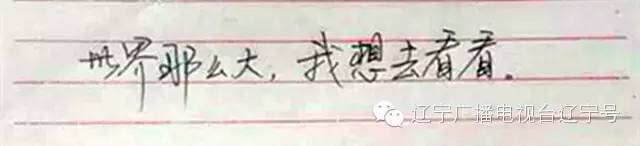 世界那么大，我想去看看。
辽宁广播电视台辽宁号